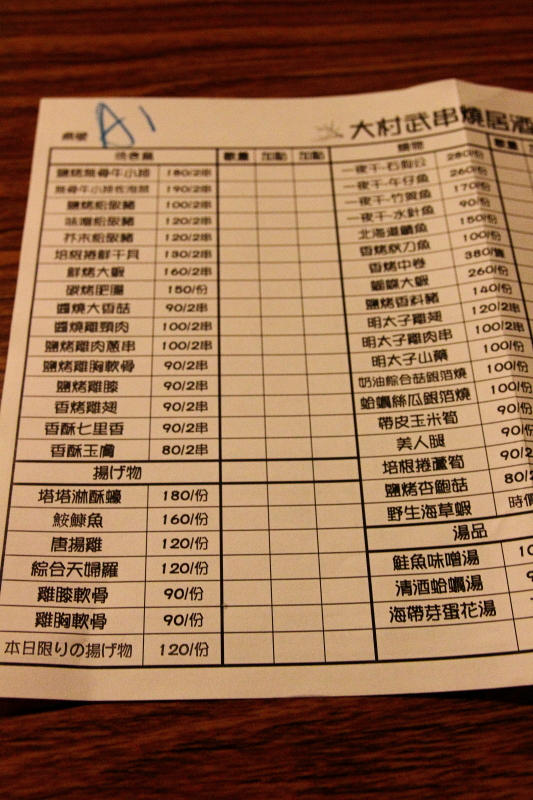 桌號 A1
大村武串燒居酒
數量 加點 加點
鹽烤無骨牛小排 180/2串
無骨牛小排佐海膽 190/2串
鹽烤松阪豬 100/2串
味噌松阪豬 120/2串
芥末松阪豬 120/2串
培根捲鮮干貝 130/2串
鮮烤大蝦 160/2串
碳烤肥腸 150/份
醬燒大香菇 90/2串
醬燒雞頸肉 100/2串
鹽烤雞肉蔥串 100/2串
鹽烤雞胸軟骨 90/2串
鹽烤雞膝 90/2串
香烤雞翅 90/2串
香酥七里香 90/2串
香酥玉膚 80/2串
揚げ物
塔塔淋酥蠔 180/份
鮟鱇魚 160/份
唐揚雞 120/份
綜合天婦羅 120/份
雞膝軟骨 90/份
雞胸軟骨 90/份
本日限りの揚げ物 120/份
燒物
一夜干-石狗公 280/份
一夜干-午仔魚 260/份
一夜干-竹筴魚 170/份
一夜干-水針魚 90/份
北海道鯖魚 150/份
香烤秋刀魚 100/份
香烤中卷 380/隻
蝴蝶大蝦 260/份
鹽烤香料豬 140/份
明太子雞翅 120/2串
明太子雞肉串 100/2串
明太子山藥 100/份
奶油綜合菇銀箔燒 100/份
蛤蠣絲瓜銀箔燒 100/份
帶皮玉米筍 90/份
美人腿 90/份
培根捲蘆筍 90/2
鹽烤杏鮑菇 80/2
野生海草蝦 時價
湯品
鮭魚味噌湯 10
清酒蛤蠣湯 9
海帶芽蛋花湯